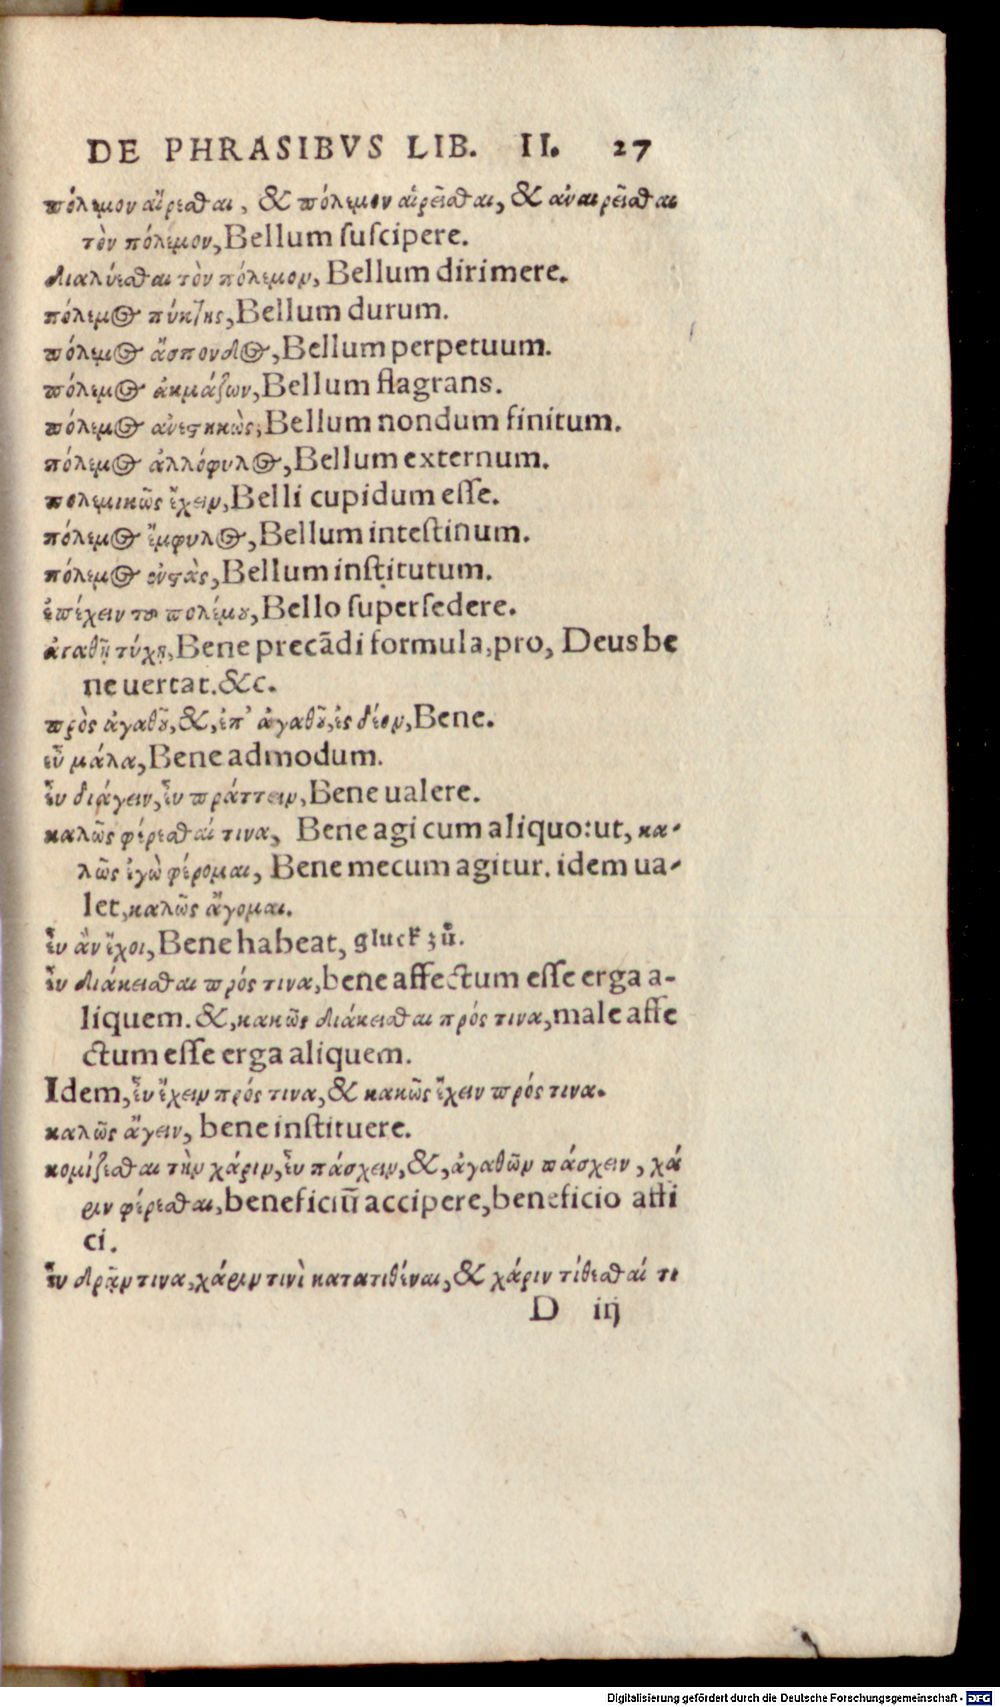 DE PHRASIBVS LIB. II. 27
πόλεμον αἴρεσθαι, & πόλεμον αἱρεῖσθαι, & ἀναιρεῖσθαι
τὸν πόλεμον, Bellum suscipere.
διαλύεσθαι τὸν πόλεμον, Bellum dirimere.
πόλεμος πύκτης, Bellum durum.
πόλεμος ἄσπονδος, Bellum perpetuum.
πόλεμος ἀκμάζων, Bellum flagrans.
πόλεμος ἀνεστηκὼς, Bellum nondum finitum.
πόλεμος ἀλλόφυλος, Bellum externum.
πολεμικῶς ἔχειν, Belli cupidum esse.
πόλεμος ἔμφυλος, Bellum intestinum.
πόλεμος συστὰς, Bellum institutum.
ἐπέχειν τοῦ πολέμου, Bello supersedere.
ἀγαθῇ τύχῃ, Bene precādi formula, pro, Deus be
ne uertat. &c.
πρὸς ἀγαθοῦ, &, ἐπ' ἀγαθοῦ, ἐς δέον, Bene.
εὖ μάλα, Bene admodum.
εὖ διάγειν, εὖ πράττειν, Bene ualere.
καλῶς φέρεσθαί τινα, Bene agi cum aliquo: ut, κα-
λῶς ἐγὼ φέρομαι, Bene mecum agitur. idem ua-
let, καλῶς ἄγομαι.
εὖ ἂν ἔχοι, Bene habeat, gluck zů.
εὖ διάκεισθαι πρός τινα, bene affectum esse erga a-
liquem. &, κακῶς διάκεισθαι πρός τινα, male affe
ctum esse erga aliquem.
Idem, εὖ ἔχειν πρός τινα, & κακῶς ἔχειν πρός τινα.
καλῶς ἄγειν, bene instituere.
κομίζεσθαι τὴν χάριν, εὖ πάσχειν, &, ἀγαθῶν πάσχειν, χά
ριν φέρεσθαι, beneficiū accipere, beneficio affi
ci.
εὖ δρᾷν τινα, χάριν τινὶ κατατιθέναι, & χάριν τίθεσθαί τι
D iij
Digitalisierung gefördert durch die Deutsche Forschungsgemeinschaft - DFG